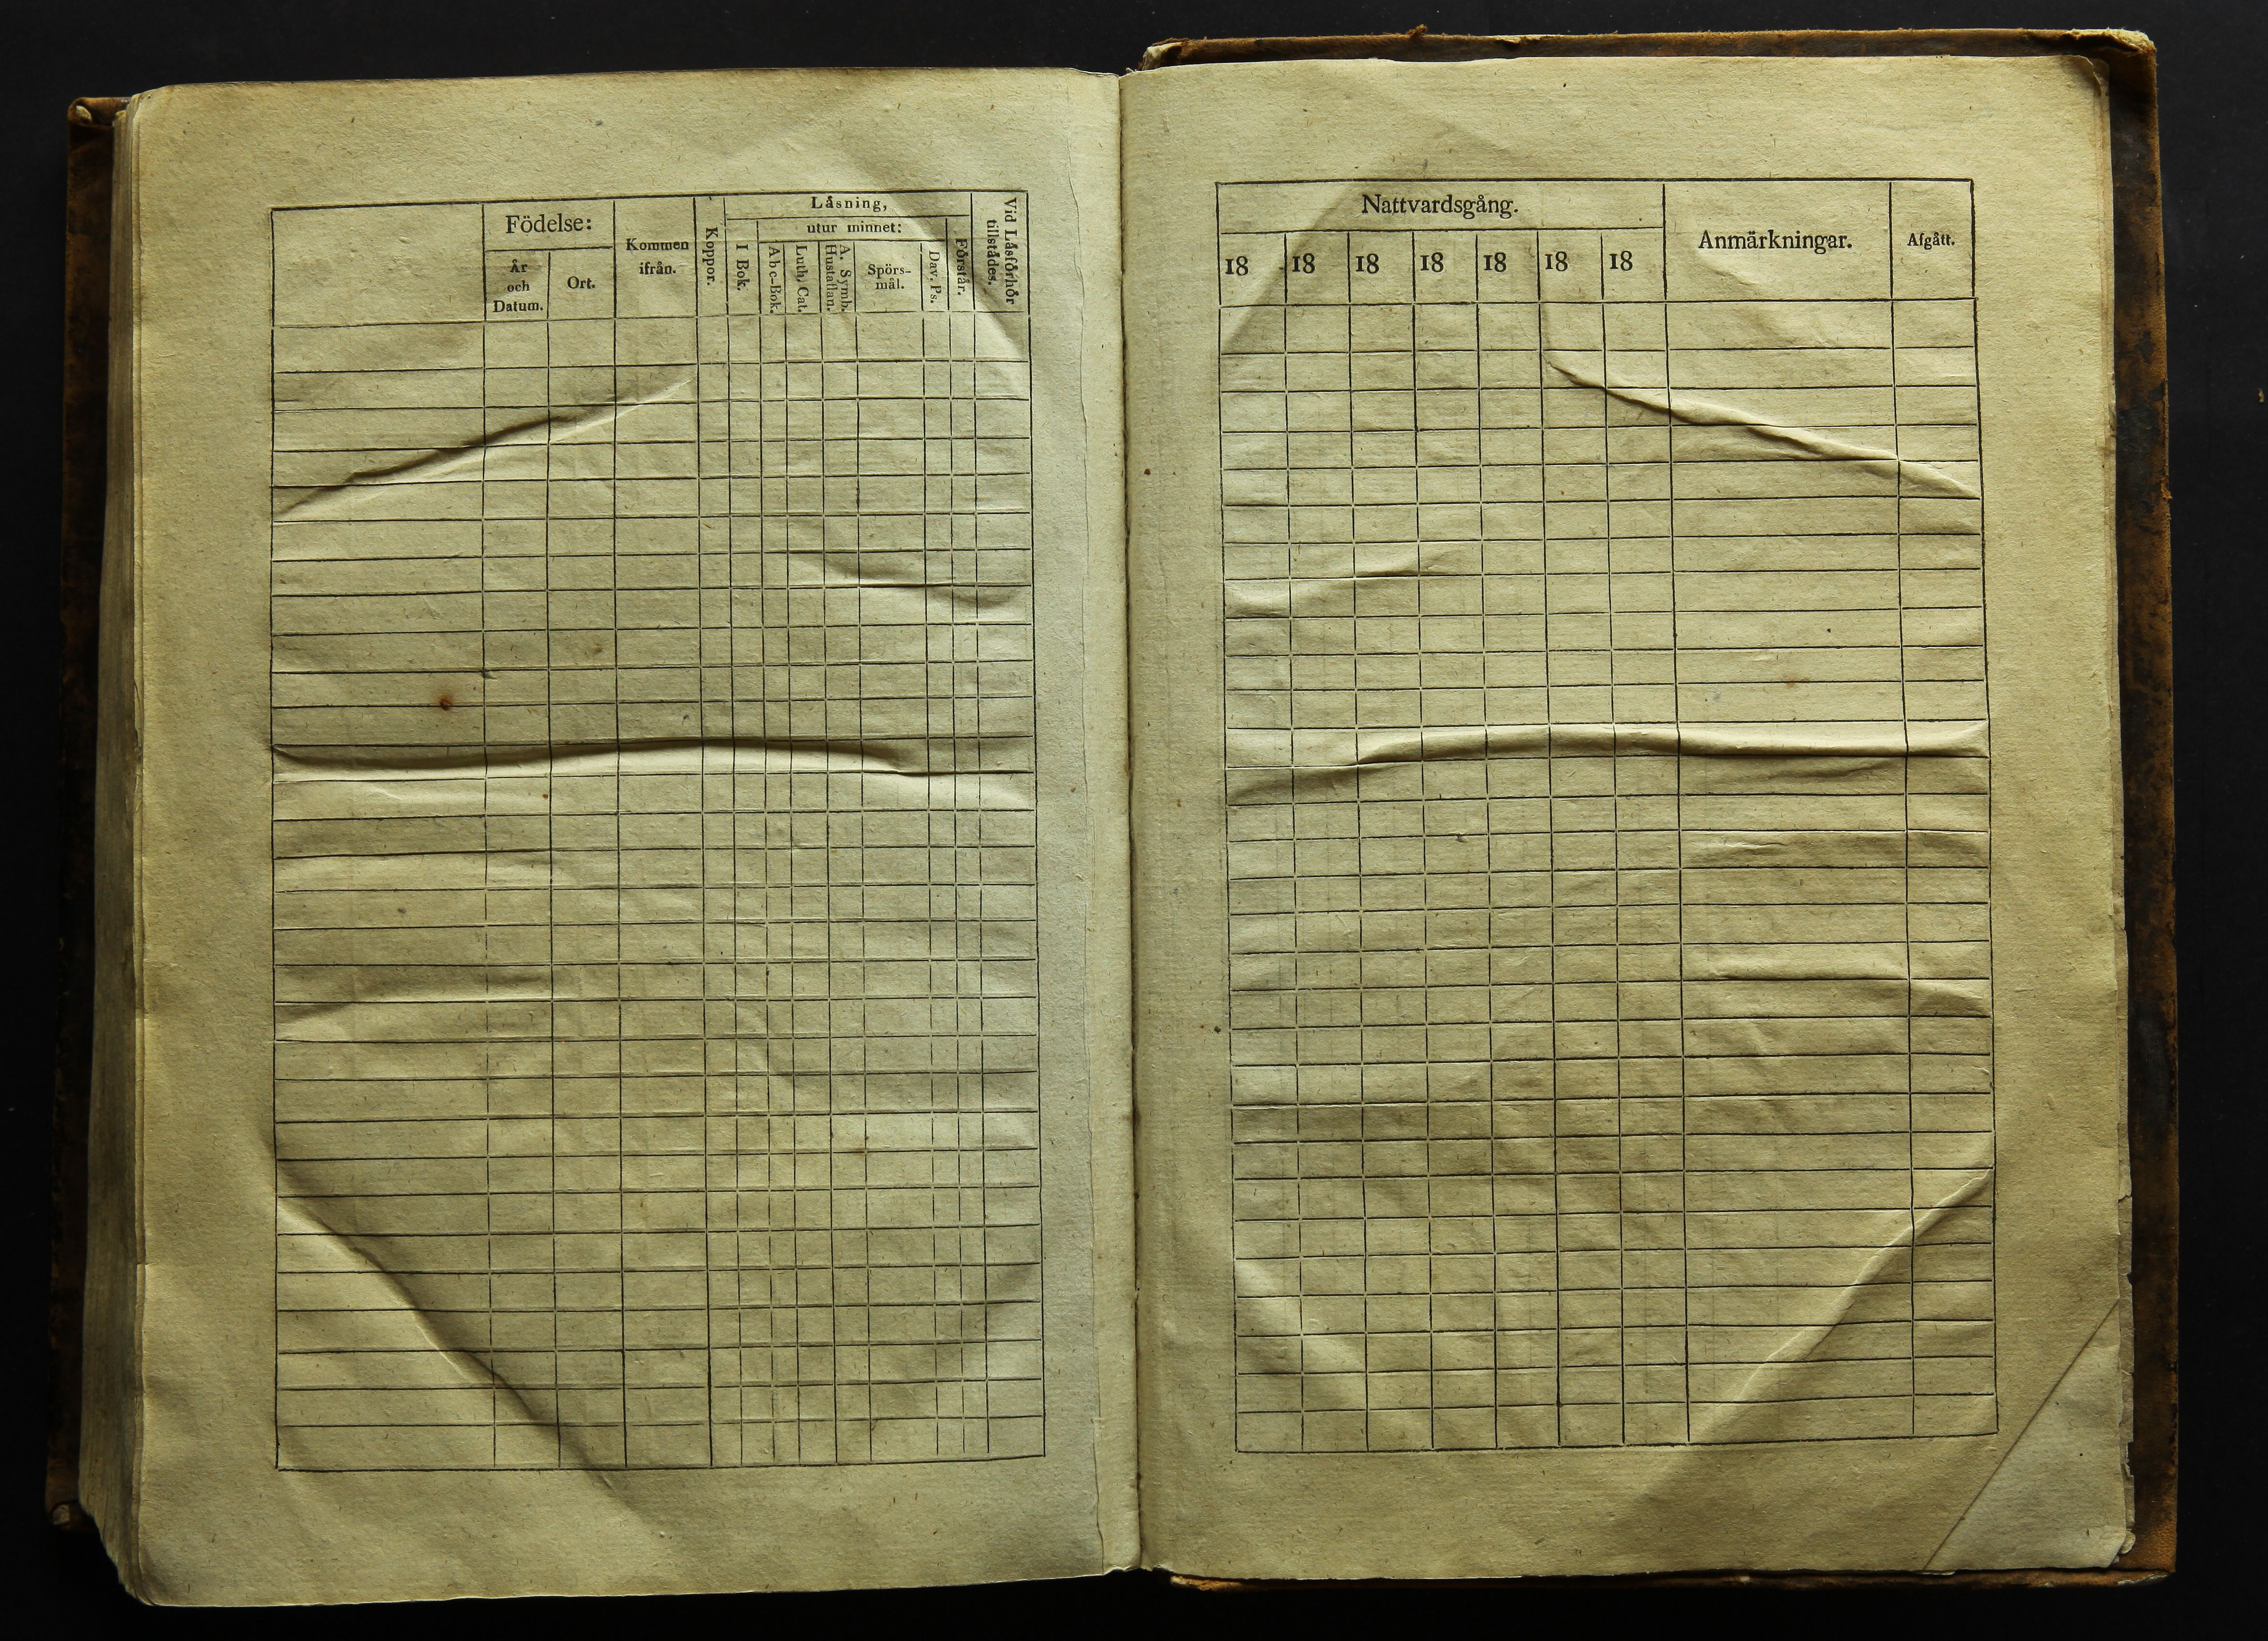 Födelse:
År
och
Datum.
Ort.
Kommen
ifrån.
Koppor.
Låsning,
I Bok.
utur minnet:
Abc-Bok.
Luth. Cat.
A. Symb.
Hustaflan.
Spörs-
mål.
Dav. Ps.
Förstår.
Vid Låsförhör
tillstådes.
Nattvardsgång.
18 18 18 18 18 18 18
Anmärkningar.
Afgått.